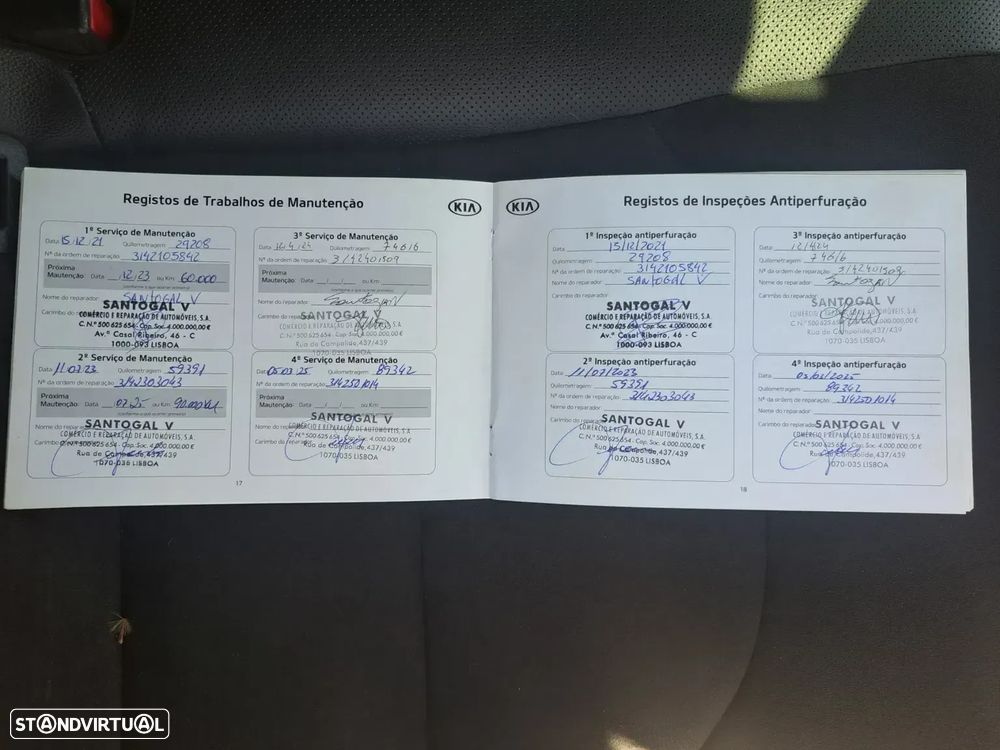 Registos de Trabalhos de Manutenção
KIA
1º Serviço de Manutenção
Data 15.12.21 Quilometragem 29208
Nº da ordem de reparação 3142105842
Próxima Manutenção: Data 12.23 ou Km 60.000
Nome do reparador SANTOGAL V
SANTOGAL V
COMÉRCIO E REPARAÇÃO DE AUTOMÓVEIS, S.A.
C.N.º 500 625 654 - Cap. Soc. 4.000.000,00 €
Av.ª Casal Ribeiro, 46 - C
1000-093 LISBOA
2º Serviço de Manutenção
Data 11.07.23 Quilometragem 59391
Nº da ordem de reparação 3142303043
Próxima Manutenção: Data 07.25 ou Km 90.000 km
Nome do reparador
SANTOGAL V
COMÉRCIO E REPARAÇÃO DE AUTOMÓVEIS, S.A.
C.N.º 500 625 654 - Cap. Soc. 4.000.000,00 €
Rua de Campolide, 437/439
1070-036 LISBOA
3º Serviço de Manutenção
Data Quilometragem 74616
Nº da ordem de reparação 3142401509
Próxima Manutenção: Data / / ou Km
Nome do reparador Santogal V
SANTOGAL V
COMÉRCIO E REPARAÇÃO DE AUTOMÓVEIS, S.A.
C.N.º 500 625 654 - Cap. Soc. 4.000.000,00 €
Rua de Campolide, 437/439
1070-035 LISBOA
4º Serviço de Manutenção
Data 05.03.25 Quilometragem 89342
Nº da ordem de reparação 3142501014
Próxima Manutenção: Data / / ou Km
Nome do reparador
SANTOGAL V
COMÉRCIO E REPARAÇÃO DE AUTOMÓVEIS, S.A.
C.N.º 500 625 654 - Cap. Soc. 4.000.000,00 €
Rua de Campolide, 437/439
1070-035 LISBOA
17
KIA
Registos de Inspeções Antiperfuração
1ª Inspeção antiperfuração
Data 15/12/2021
Quilometragem 29208
Nº da ordem de reparação 3142105842
Nome do reparador SANTOGAL V
SANTOGAL V
COMÉRCIO E REPARAÇÃO DE AUTOMÓVEIS, S.A.
C.N.º 500 625 654 - Cap. Soc. 4.000.000,00 €
Av.ª Casal Ribeiro, 46 - C
1000-093 LISBOA
2ª Inspeção antiperfuração
Data 11/07/2023
Quilometragem 59391
Nº da ordem de reparação 3142303043
Nome do reparador
SANTOGAL V
COMÉRCIO E REPARAÇÃO DE AUTOMÓVEIS, S.A.
C.N.º 500 625 654 - Cap. Soc. 4.000.000,00 €
Rua de Campolide, 437/439
1070-035 LISBOA
3ª Inspeção antiperfuração
Data
Quilometragem 74616
Nº da ordem de reparação 3142401509
Nome do reparador Santogal V
SANTOGAL V
COMÉRCIO E REPARAÇÃO DE AUTOMÓVEIS, S.A.
C.N.º 500 625 654 - Cap. Soc. 4.000.000,00 €
Rua de Campolide, 437/439
1070-035 LISBOA
4ª Inspeção antiperfuração
Data
Quilometragem 89342
Nº da ordem de reparação 3142501014
Nome do reparador
SANTOGAL V
COMÉRCIO E REPARAÇÃO DE AUTOMÓVEIS, S.A.
C.N.º 500 625 654 - Cap. Soc. 4.000.000,00 €
Rua de Campolide, 437/439
1070-035 LISBOA
18
STANDVIRTUAL